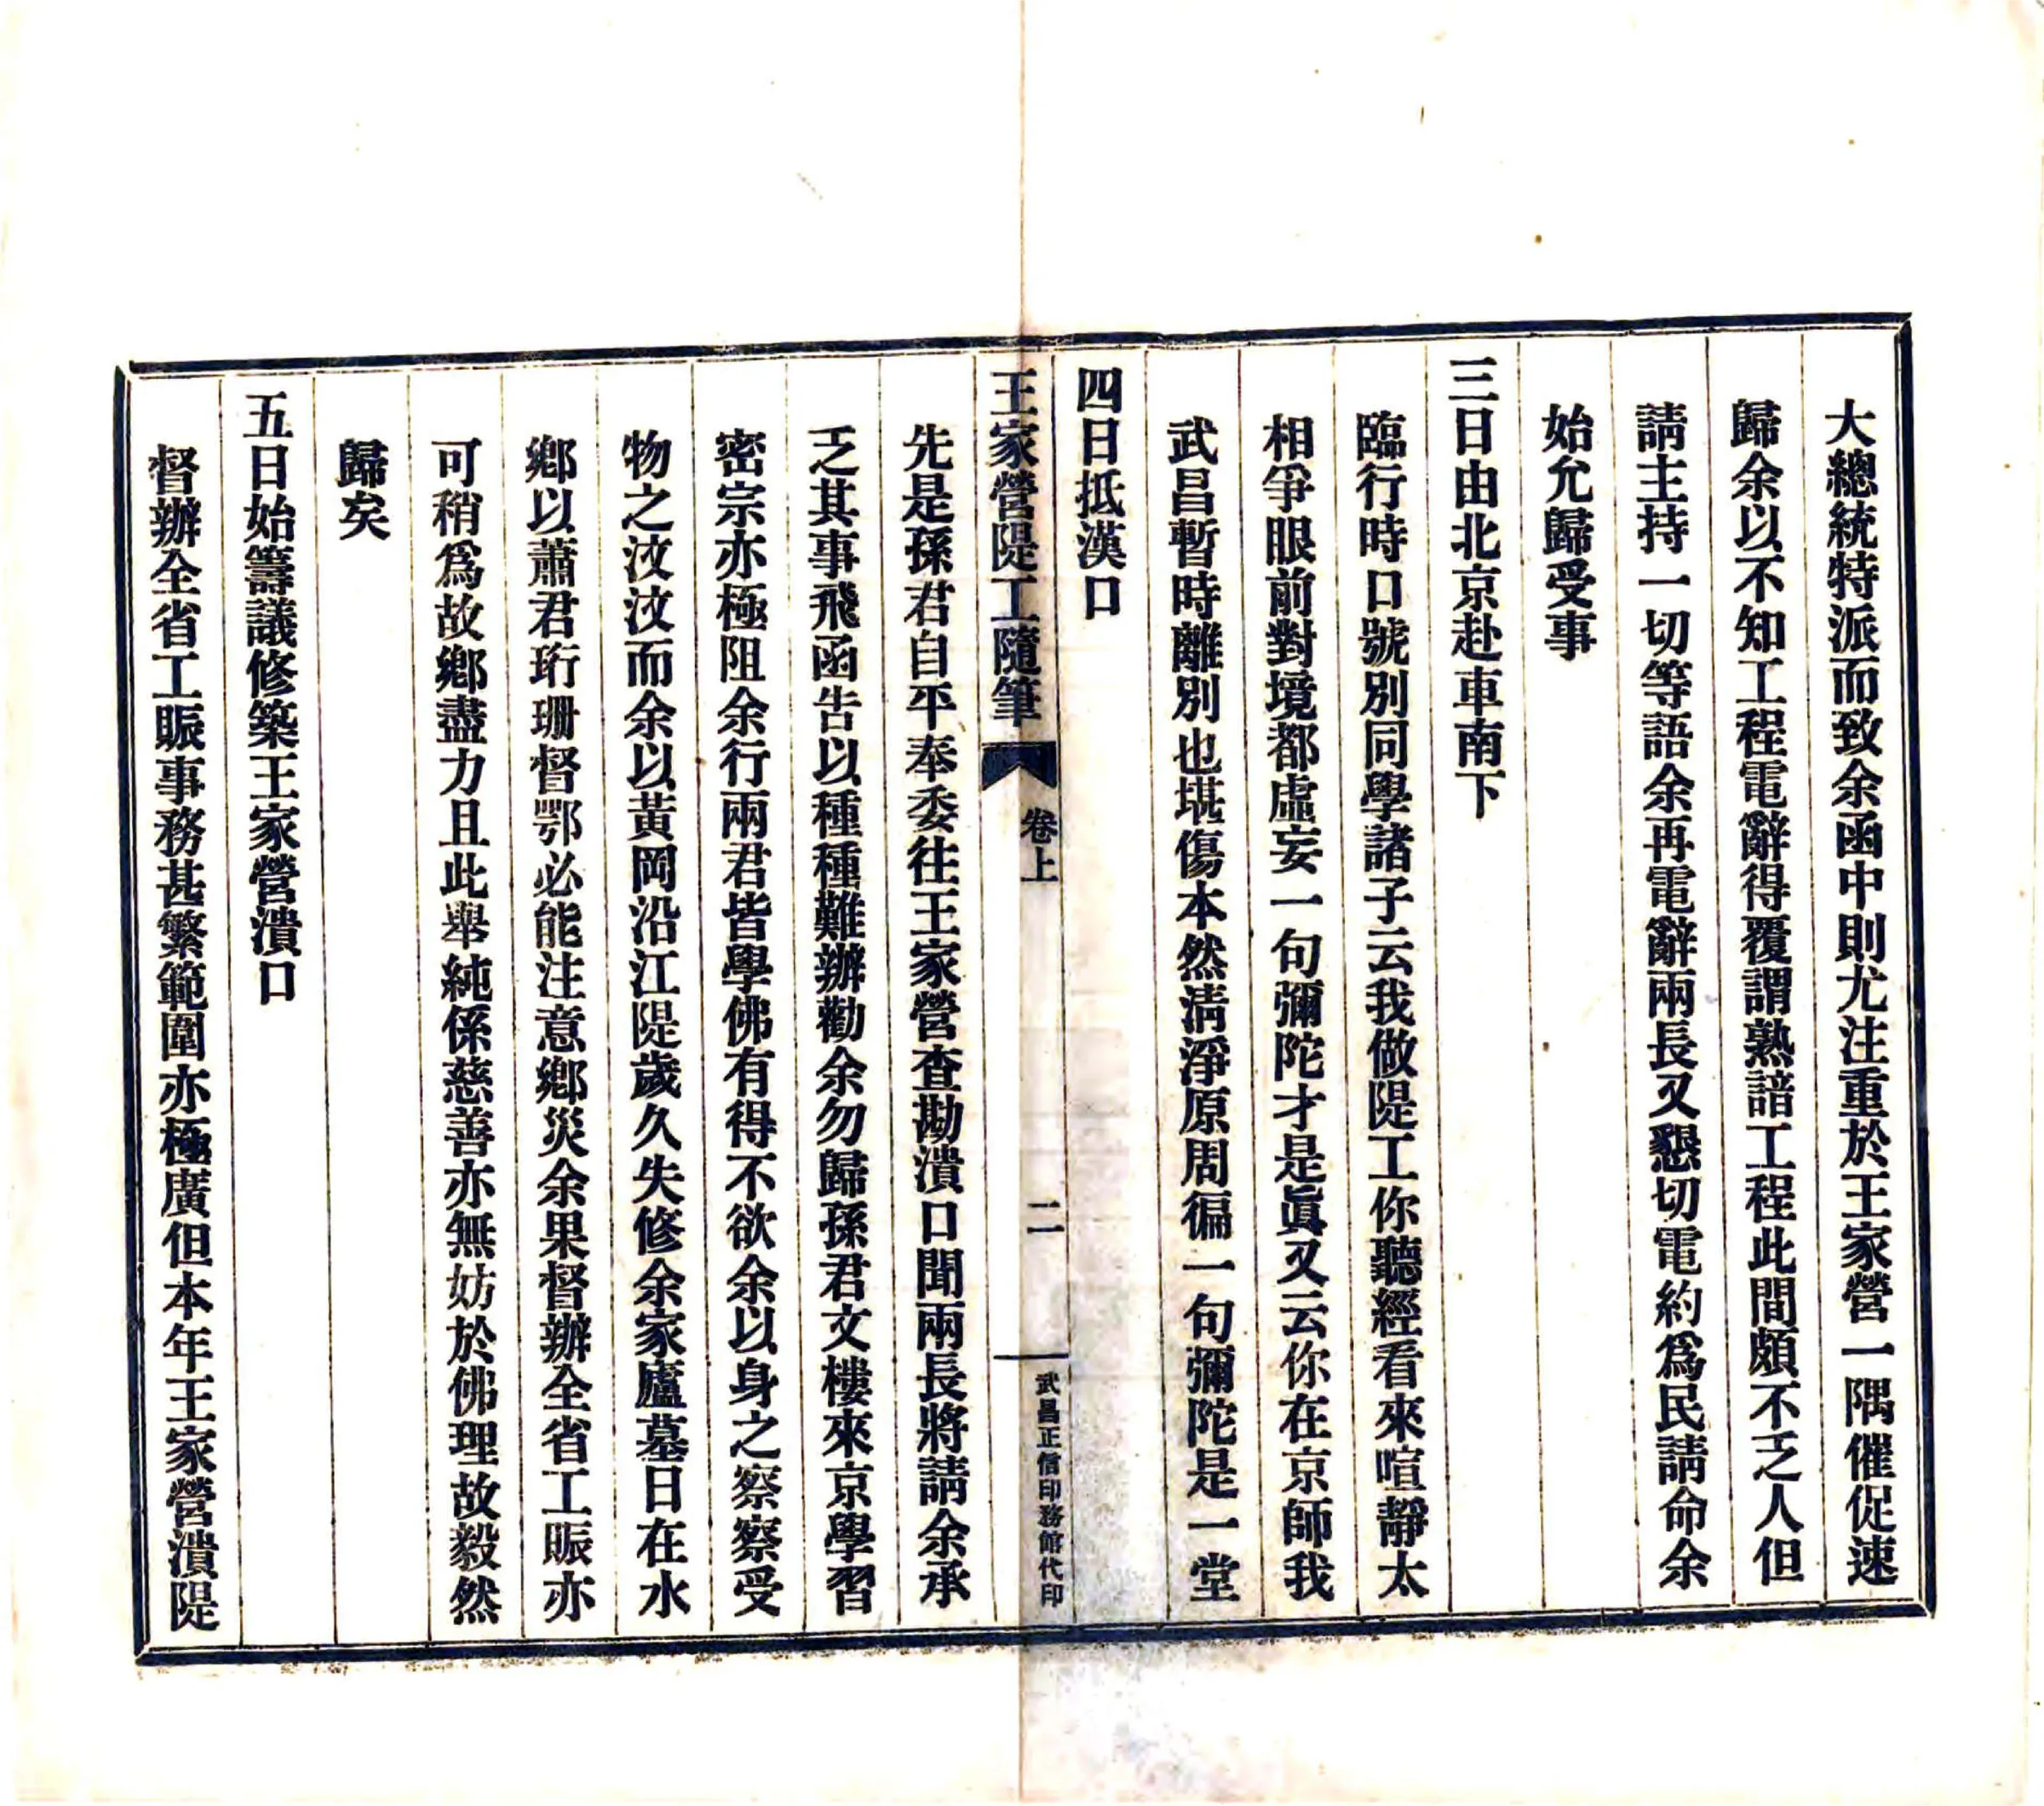 大總統特派而致余函中則尤注重於王家營一隅催促速
歸余以不知工程電辭得覆謂熟諳工程此間頗不乏人但
請主持一切等語余再電辭兩長又懇切電約爲民請命余
始允歸受事
三日由北京赴車南下
臨行時口號別同學諸子云我做隄工你聽經看來喧靜太
相爭眼前對境都虛妄一句彌陀才是眞又云你在京師我
武昌暫時離別也堪傷本然淸淨原周徧一句彌陀是一堂
四日抵漢口
王家營隄工隨筆 卷上 二 武昌正信印務館代印
先是孫君自平奉委往王家營查勘潰口聞兩長將請余承
乏其事飛函告以種種難辦勸余勿歸孫君文樓來京學習
密宗亦極阻余行兩君皆學佛有得不欲余以身之察察受
物之汶汶而余以黃岡沿江隄歲久失修余家廬墓日在水
鄉以蕭君珩珊督鄂必能注意鄉災余果督辦全省工賑亦
可稍爲故鄉盡力且此舉純係慈善亦無妨於佛理故毅然
歸矣
五日始籌議修築王家營潰口
督辦全省工賑事務甚繁範圍亦極廣但本年王家營潰隄